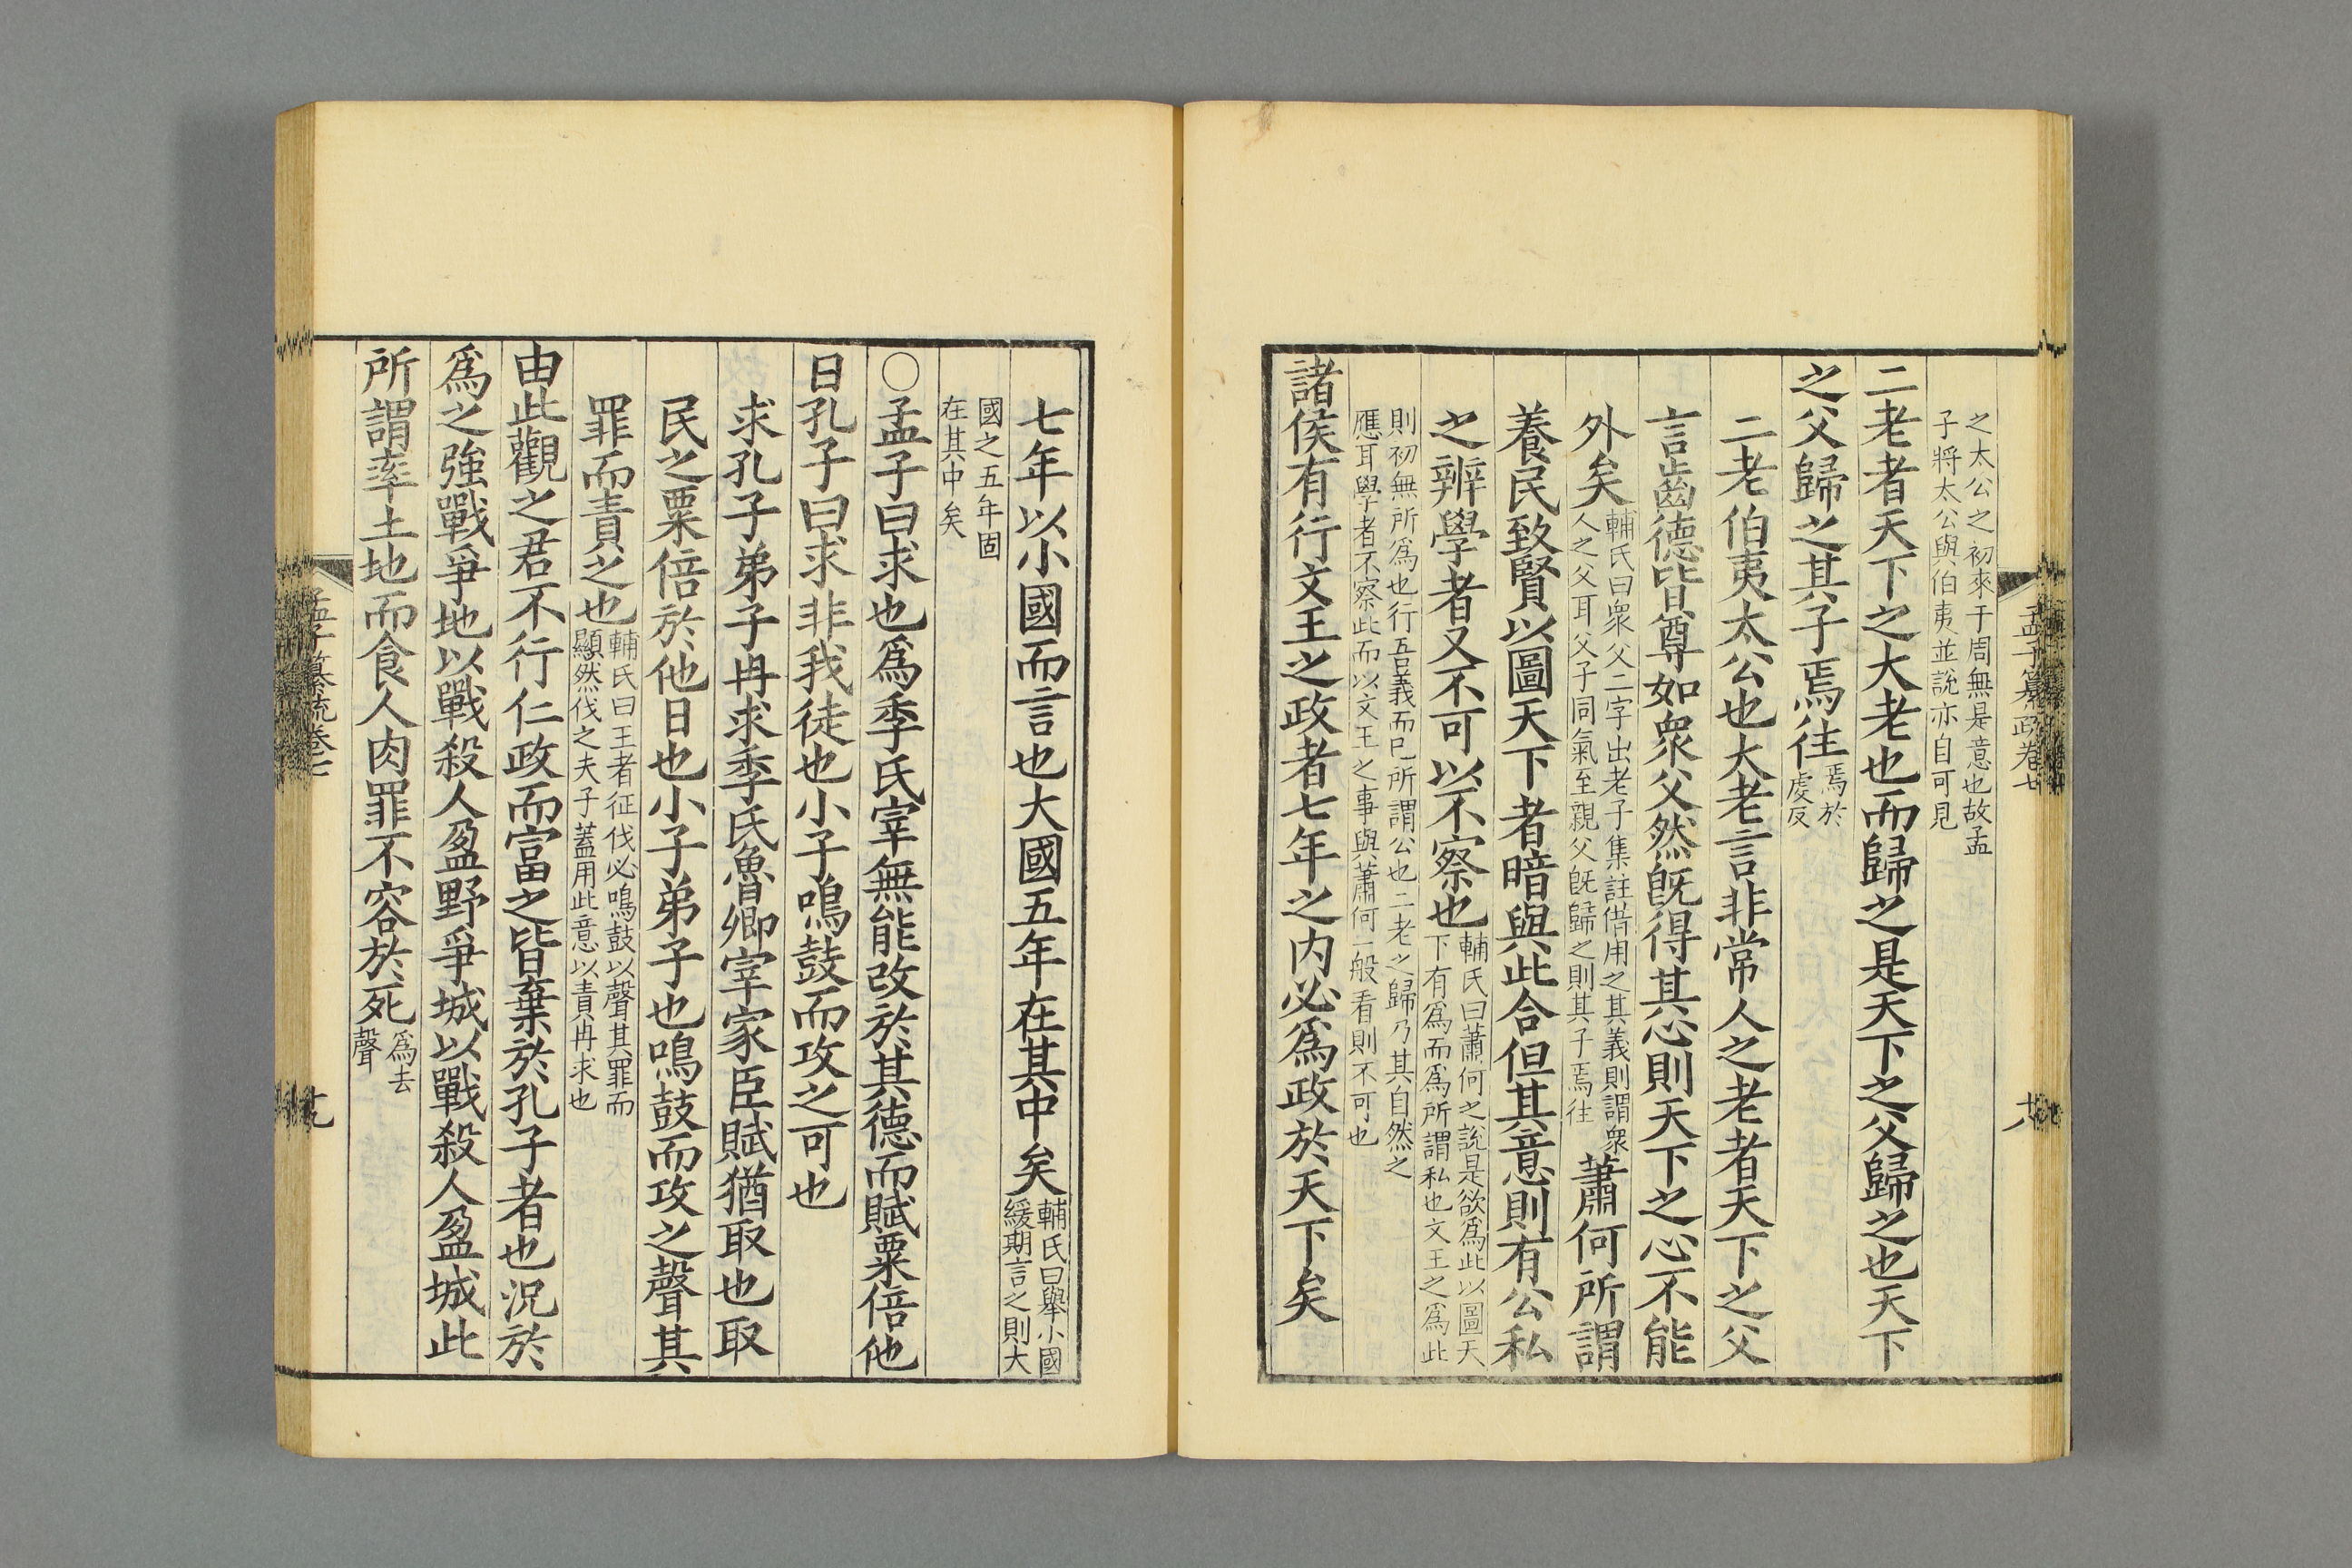 孟子纂疏卷七
十八
之太公之初來于周無是意也故孟
子將太公與伯夷並說亦自可見
二老者天下之大老也而歸之是天下之父歸之也天下
之父歸之其子焉往
焉於
虔反
二老伯夷太公也大老言非常人之老者天下之父
言齒德皆尊如衆父然旣得其心則天下之心不能
外矣
輔氏曰衆父二字出老子集註借用之其義則謂衆
人之父耳父子同氣至親父旣歸之則其子焉往
蕭何所謂
養民致賢以圖天下者暗與此合但其意則有公私
之辨學者又不可以不察也
輔氏曰蕭何之說是欲爲此以圖天
下有爲而爲所謂私也文王之爲此
則初無所爲也行吾義而已所謂公也二老之歸乃其自然之
應耳學者不察此而以文王之事與蕭何一般看則不可也
諸侯有行文王之政者七年之内必爲政於天下矣
七年以小國而言也大國五年在其中矣
輔氏曰舉小國
緩期言之則大
國之五年固
在其中矣
○孟子曰求也爲季氏宰無能改於其德而賦粟倍他
日孔子曰求非我徒也小子鳴鼓而攻之可也
求孔子弟子冉求季氏魯卿宰家臣賦猶取也取
民之粟倍於他日也小子弟子也鳴鼓而攻之聲其
罪而責之也
輔氏曰王者征伐必鳴鼓以聲其罪而
顯然伐之夫子蓋用此意以責冉求也
由此觀之君不行仁政而富之皆棄於孔子者也況於
爲之強戰爭地以戰殺人盈野爭城以戰殺人盈城此
所謂率土地而食人肉罪不容於死
爲去
聲
孟子纂疏卷七
十九